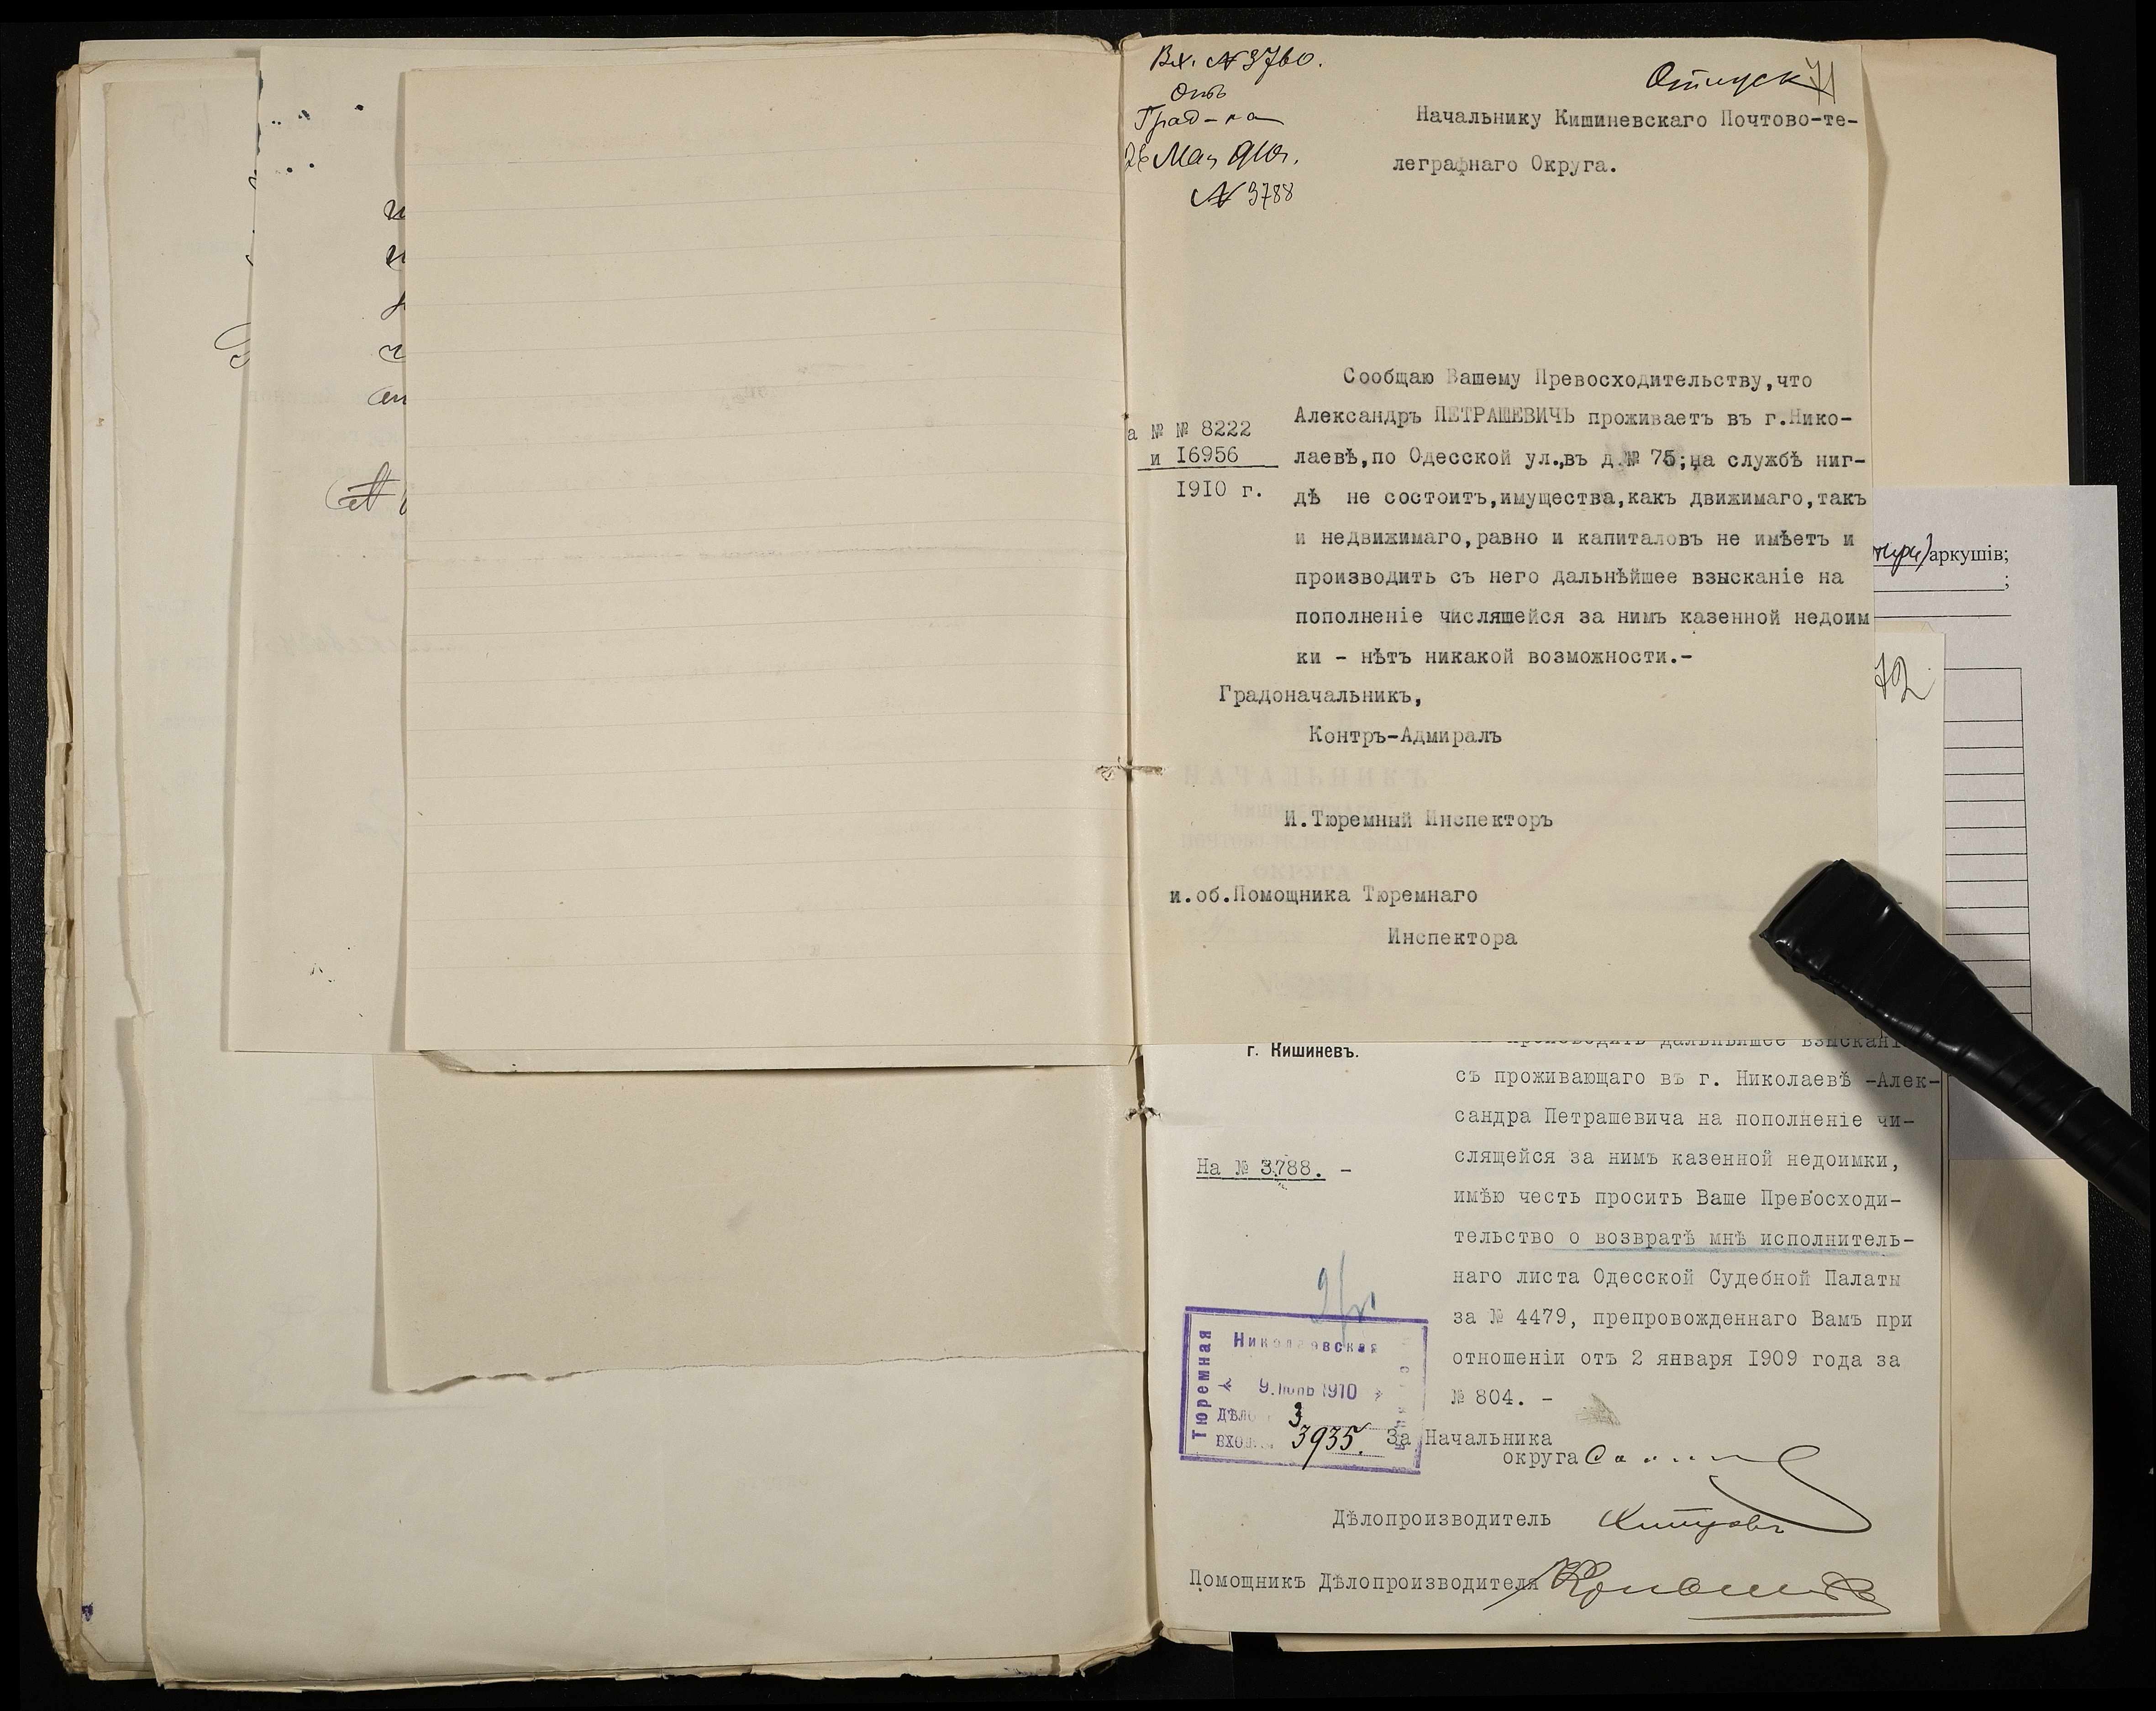 Вх. № 3760.
Отъ
Град-ка
26 Мая 910 г.
№ 3788
Отпуск
71
Начальнику Кишиневскаго Почтово-те-
леграфнаго Округа.
Сообщаю Вашему Превосходительству,что
Александръ ПЕТРАШЕВИЧЬ проживаетъ въ г.Нико-
а № № 8222
и I6956
I9I0 г.
лаевѣ,по Одесской ул.,въ д.№ 75;на службѣ ниг-
дѣ не состоитъ,имущества,какъ движимаго,такъ
и недвижимаго,равно и капиталовъ не имѣетъ и
производить съ него дальнѣйшее взысканіе на
пополненіе числяшейся за нимъ казенной недоим
ки - нѣтъ никакой возможности.-
Градоначальникъ,
Контръ-Адмиралъ
И.Тюремный Инспекторъ
и.об.Помощника Тюремнаго
Инспектора
аркушів;
;
72
г. Кишиневъ.
производить дальнѣйшее взыскані
съ проживающаго въ г. Николаевѣ -Алек-
сандра Петрашевича на пополненіе чи-
слящейся за нимъ казенной недоимки,
На № 3788. -
имѣю честь просить Ваше Превосходи-
тельство о возвратѣ мнѣ исполнитель-
наго листа Одесской Судебной Палаты
за № 4479, препровожденнаго Вамъ при
отношеніи отъ 2 января I909 года за
№ 804. -
Тюремная
Николаевская
9. Іюнь 1910
ДѢЛО 3
ВХОД. 3935.
За Начальника
округа
Дѣлопроизводитель
Помощникъ Дѣлопроизводителя